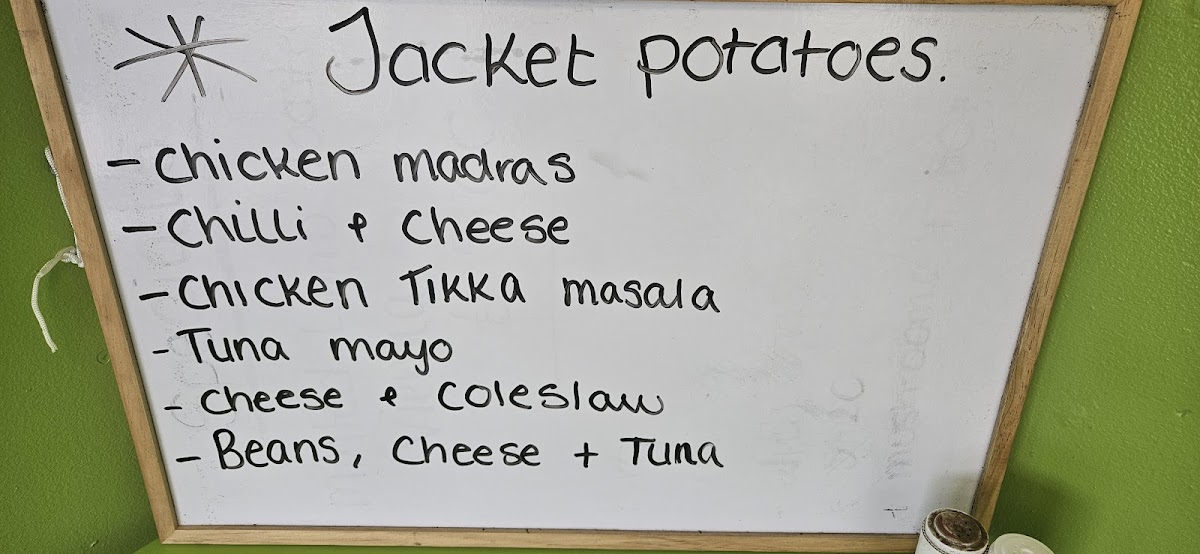 * Jacket potatoes.
- Chicken madras
- Chilli & Cheese
- Chicken Tikka masala
- Tuna mayo
- Cheese & Coleslaw
- Beans, Cheese + Tuna